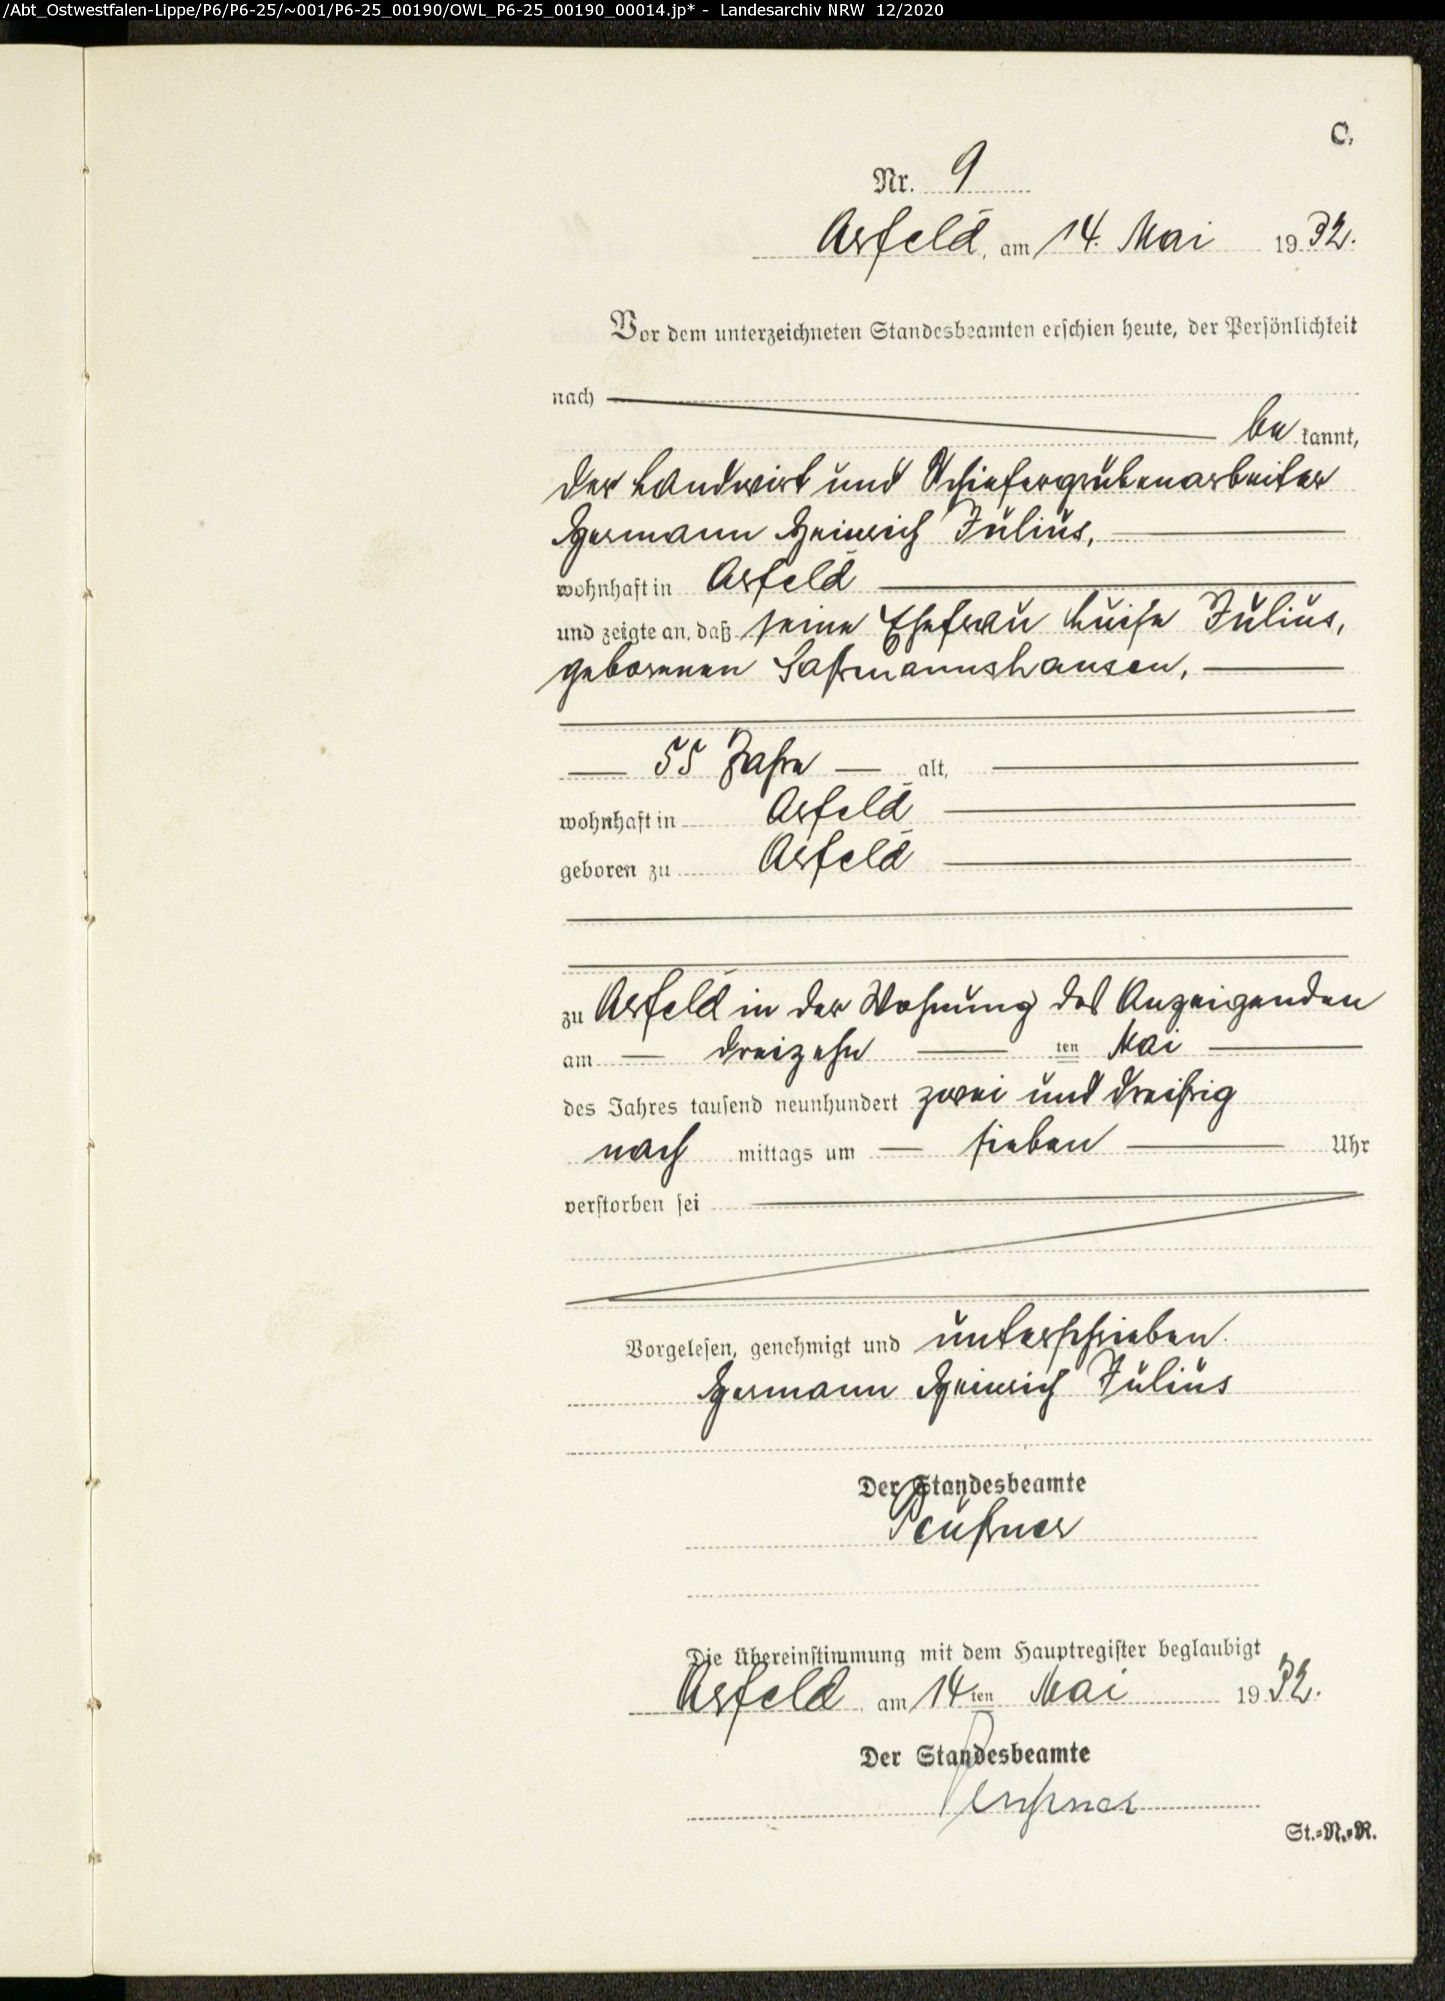 /Abt_Ostwestfalen-Lippe/P6/P6-25/~001/P6-25_00190/OWL_P6-25_00190_00014.jp* - Landesarchiv NRW 12/2020
C.
Nr. 9
Arfeld, am 14. Mai 1932.
Vor dem unterzeichneten Standesbeamten erschien heute, der Persönlichkeit
nach
be kannt,
der Landwirt und Schiefergrubenarbeiter
Hermann Heinrich Julius,
wohnhaft in Arfeld
und zeigte an, daß seine Ehefrau Luise Julius,
geborenen Saßmannshausen,
55 Jahre alt,
wohnhaft in Arfeld
geboren zu Arfeld
zu Arfeld in der Wohnung des Anzeigenden
am dreizehn ten Mai
des Jahres tausend neunhundert zwei und dreißig
nach mittags um sieben Uhr
verstorben sei
Vorgelesen, genehmigt und unterschrieben.
Hermann Heinrich Julius
Der Standesbeamte
Peußner
Die Übereinstimmung mit dem Hauptregister beglaubigt
Arfeld, am 14ten Mai 1932.
Der Standesbeamte
Peußner
St.-N.-R.